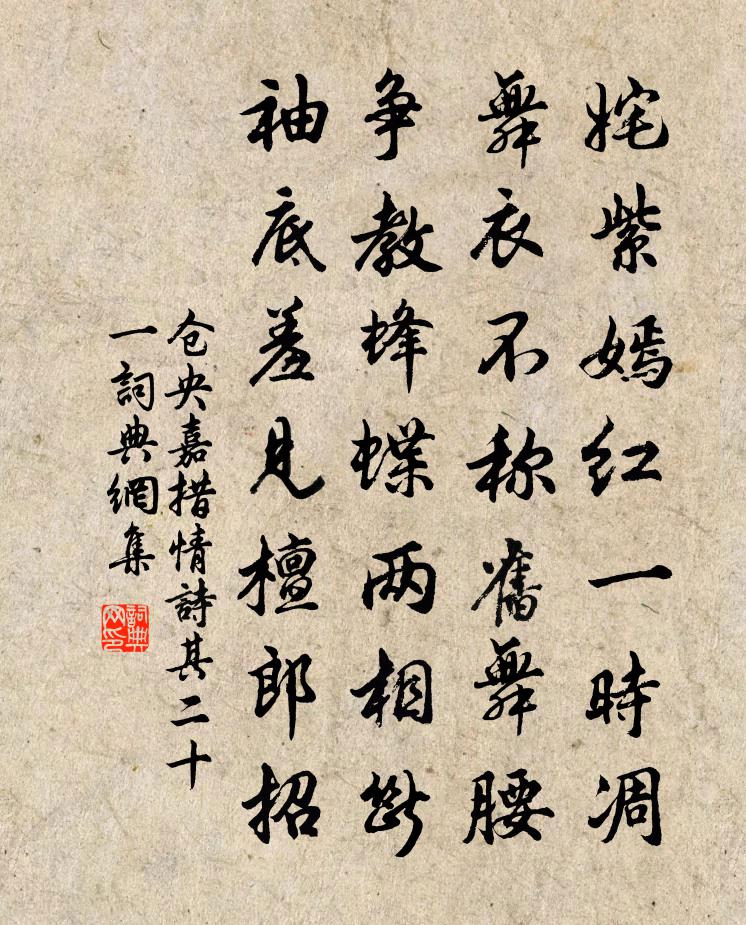 姹紫嫣红一時凋
舞衣不称舊舞腰
争教蜂蝶两相斷
袖底羞見檀郎招
仓央嘉措情詩其二十
一詞典網集
詞典网印